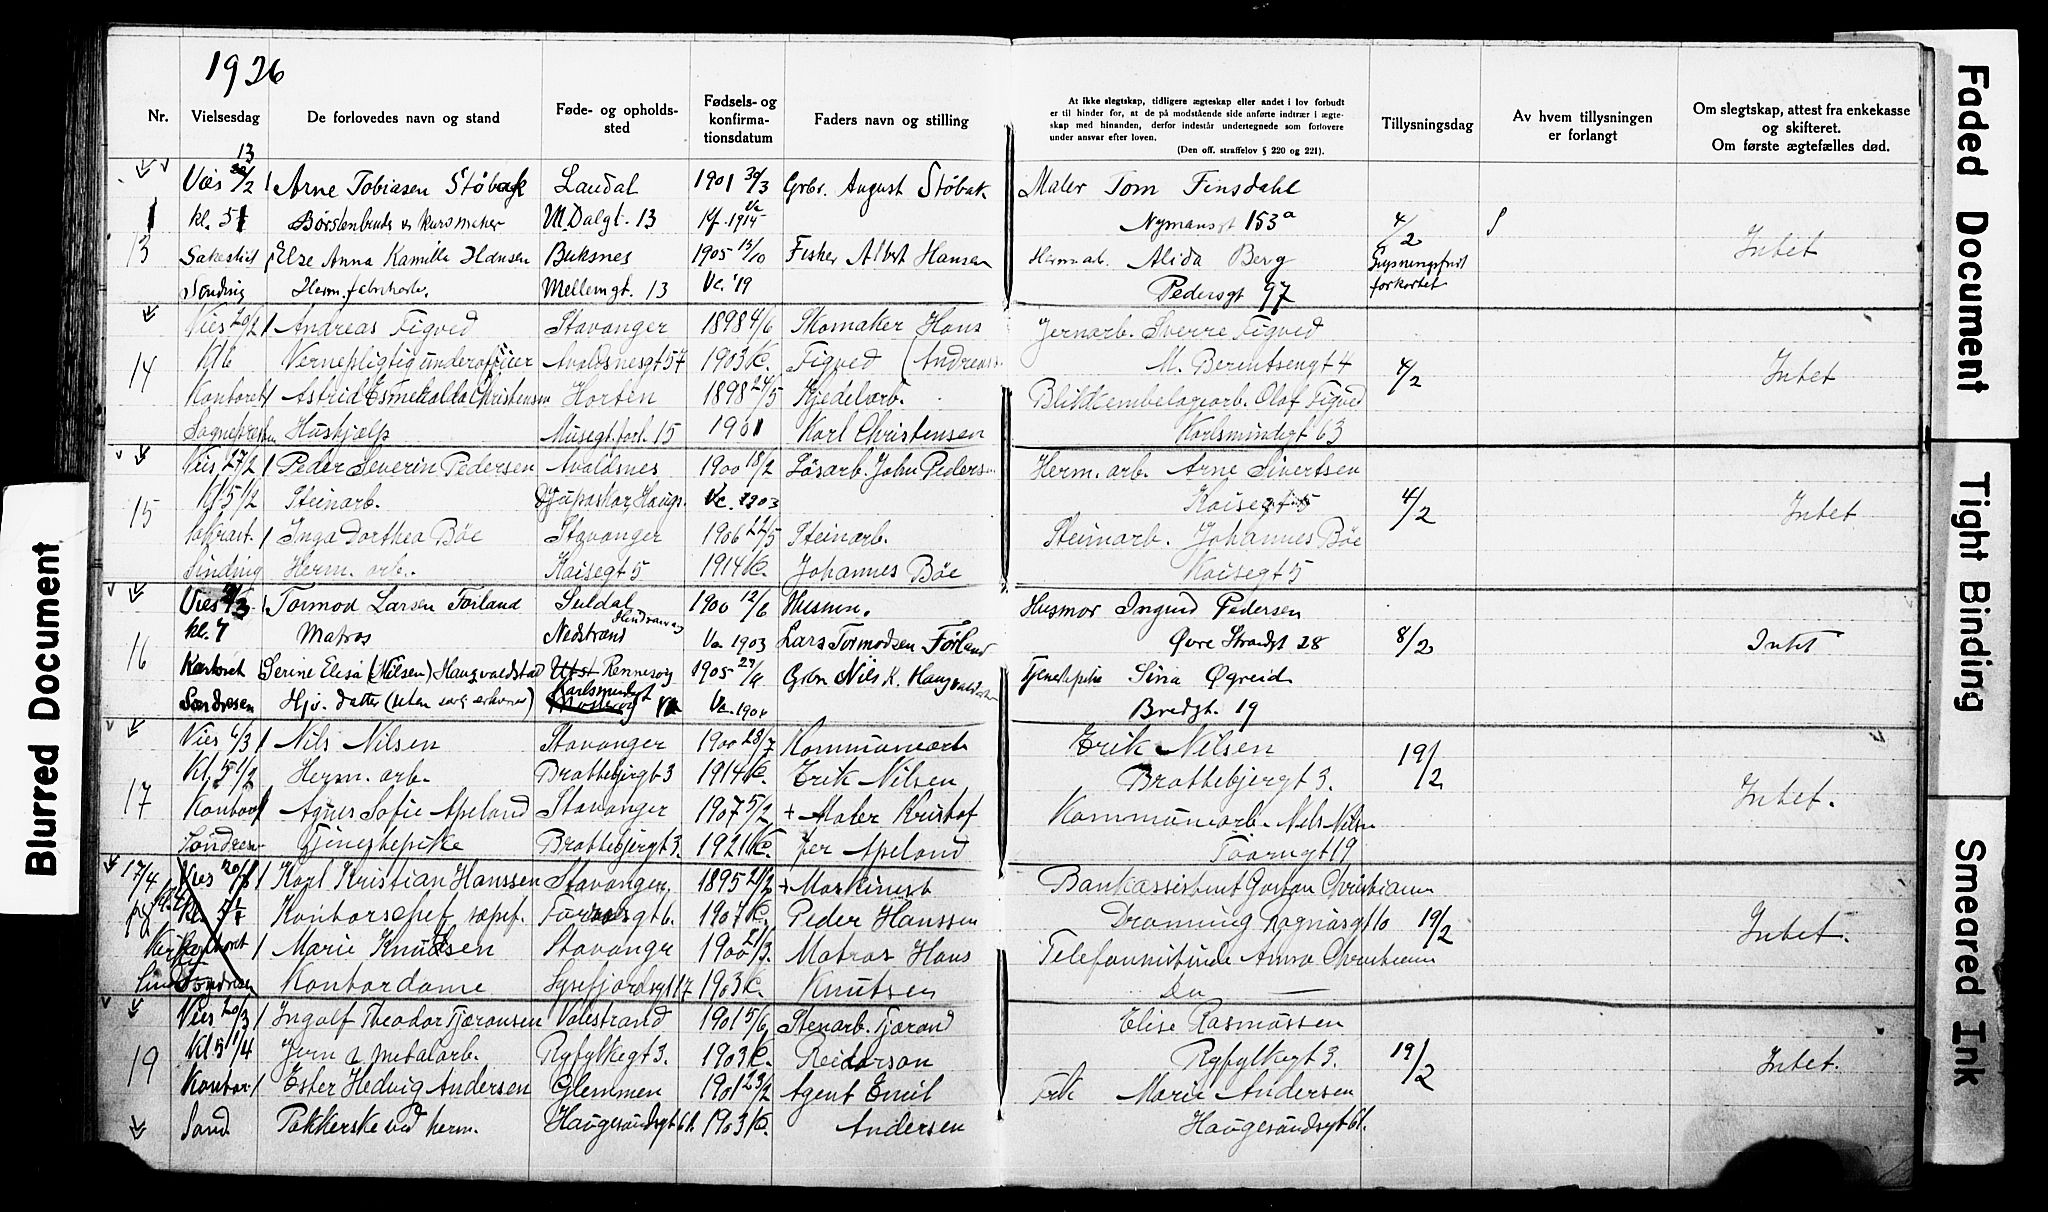 1926
Nr.
Vielsesdag
De forlovedes navn og stand
Føde- og opholds-
sted
Fødsels- og
konfirma-
tionsdatum
Faders navn og stilling
At ikke slegtskap, tidligere ægteskap eller andet i lov forbudt
er til hinder for, at de på modstående side anførte indtrær i ægte-
skap med hinanden, derfor indestår undertegnede som forlovere
under ansvar efter loven.
(Den off. straffelov § 220 og 221).
Tillysningsdag
Av hvem tillysningen
er forlangt
Om slegtskap, attest fra enkekasse
og skifteret.
Om første ægtefælles død.
13
Vies /2 Arne Tobiasen Støbak Laudal 1901 30/3 Grbr. August Støbak Maler Tom Finsdahl
kl. 5 Børstenbinder & kursmaker M. Dalgt. 13 Kf. 1915 Nymansgt 153a 4/2
13 Sakristiet Else Anna Kamilla Hansen Buksnes 1905 13/10 Fisker Albert Hansen Herm.arb. Alida Berg Intet
Sinding Herm. fabrikarb. Mellemgt. 13 Va. '19 Pedersgt 97 forkortet
Vies 20/2 Andreas Figved Stavanger 1898 4/6 Skomaker Hans Jernarb. Sverre Figved
14 Kl 6 Vernepligtig underofficer Avaldsnesgt 54 1903 K. Figved (Andreas M. Berentsengt 4 4/2 Intet
Kontoret Astrid Esmeralda Christensen Horten 1898 24/5 Kjedelarb. Blikkembalagearb. Olaf Figved
Sognepresten Hushjælp Musegt. forl. 15 1901 Karl Christensen Karlsmindegt 63
Vies 27/2 Peder Severin Pedersen Avaldsnes 1900 18/2 Løsarb. John Peders Herm. arb. Arne Sivertsen
15 Kl. 5 1/2 Steinarb. Djupaskar, Haugs. Va. 1903 Kaisegt 5 4/2 Intet
Sakrist. Inga Dorthea Böe Stavanger 1906 22/5 Steinarb. Steinarb. Johannes Böe
Sinding Herm. arb. Kaisegt 5 1914 K. Johannes Böe Kaisegt 5
Vies /3 Tormod Larsen Förland Suldal 1900 12/6 Husm. Husmor Ingrid Pedersen
kl. 7 Matros Nedstrand Va 1903 Lars Tormodsen Førland Øvre Strandgt 28 8/2 Intet
16 Kontoret Serine Elisa (Nilsen) Haugvaldstad Utst Rennesøy 1905 Grbr. Nils K. Haugvaldstad Tjenestepike Sina Øgreid
Søndresen Hjv. datter (uten særl. erhverv) Karlsmindegt Va. 1904 Bredgt. 19
Vies 6/3 Nils Nilsen Stavanger 1900 28/7 Kommunearb Erik Nilsen 19/2
Kl. 5 1/2 Herm. arb. Brattebjergt 3 1914 K. Erik Nilsen Brattebjergt 3.
17 Kontoret Agnes Sofie Apeland Stavanger 1907 5/2 + Maler Kristof Kommunearb. Nils Nilsen Intet.
Söndresen Tjenestepike Brattebjergt 3. 1921 K. fer Apeland 19
17/4 Vies 20/3 Karl Kristian Hanssen Stavanger 1895 21/2 + Maskinarb Bankassistent Christiansen
Kl. 5 Kontorchef, sæpef. 6. 1907 K. Peder Hanssen Dronning Ragnasgt 10 19/2 Intet.
Kirken Kontoret Marie Knudsen Stavanger 1900 21/3. Matros Hans Telefonistinde Anna Christiansen
Sind Søndresen Kontordame Lysefjordsgt 17 1903 K. Knutsen Do
Vies 20/3 Ingolf Theodor Tjærandsen Valestrand 1901 5/6 Stenarb. Tjærand Elise Rasmussen
19 Kl. 5 1/4 Jern & metalarb. Ryfylkegt 3. 1903 K. Reidarson Ryfylkegt 3. 19/2 Intet.
Kontor Ester Hedvig Andersen Glemmen 1901 23/2 Agent Emil Frk Marie Andersen
Sønd. Pakkerske ved herm. Haugesundsgt 61. 1903 K. Andersen Haugesundsgt 61.
Blurred Document
Faded Document
Tight Binding
Smeared Ink